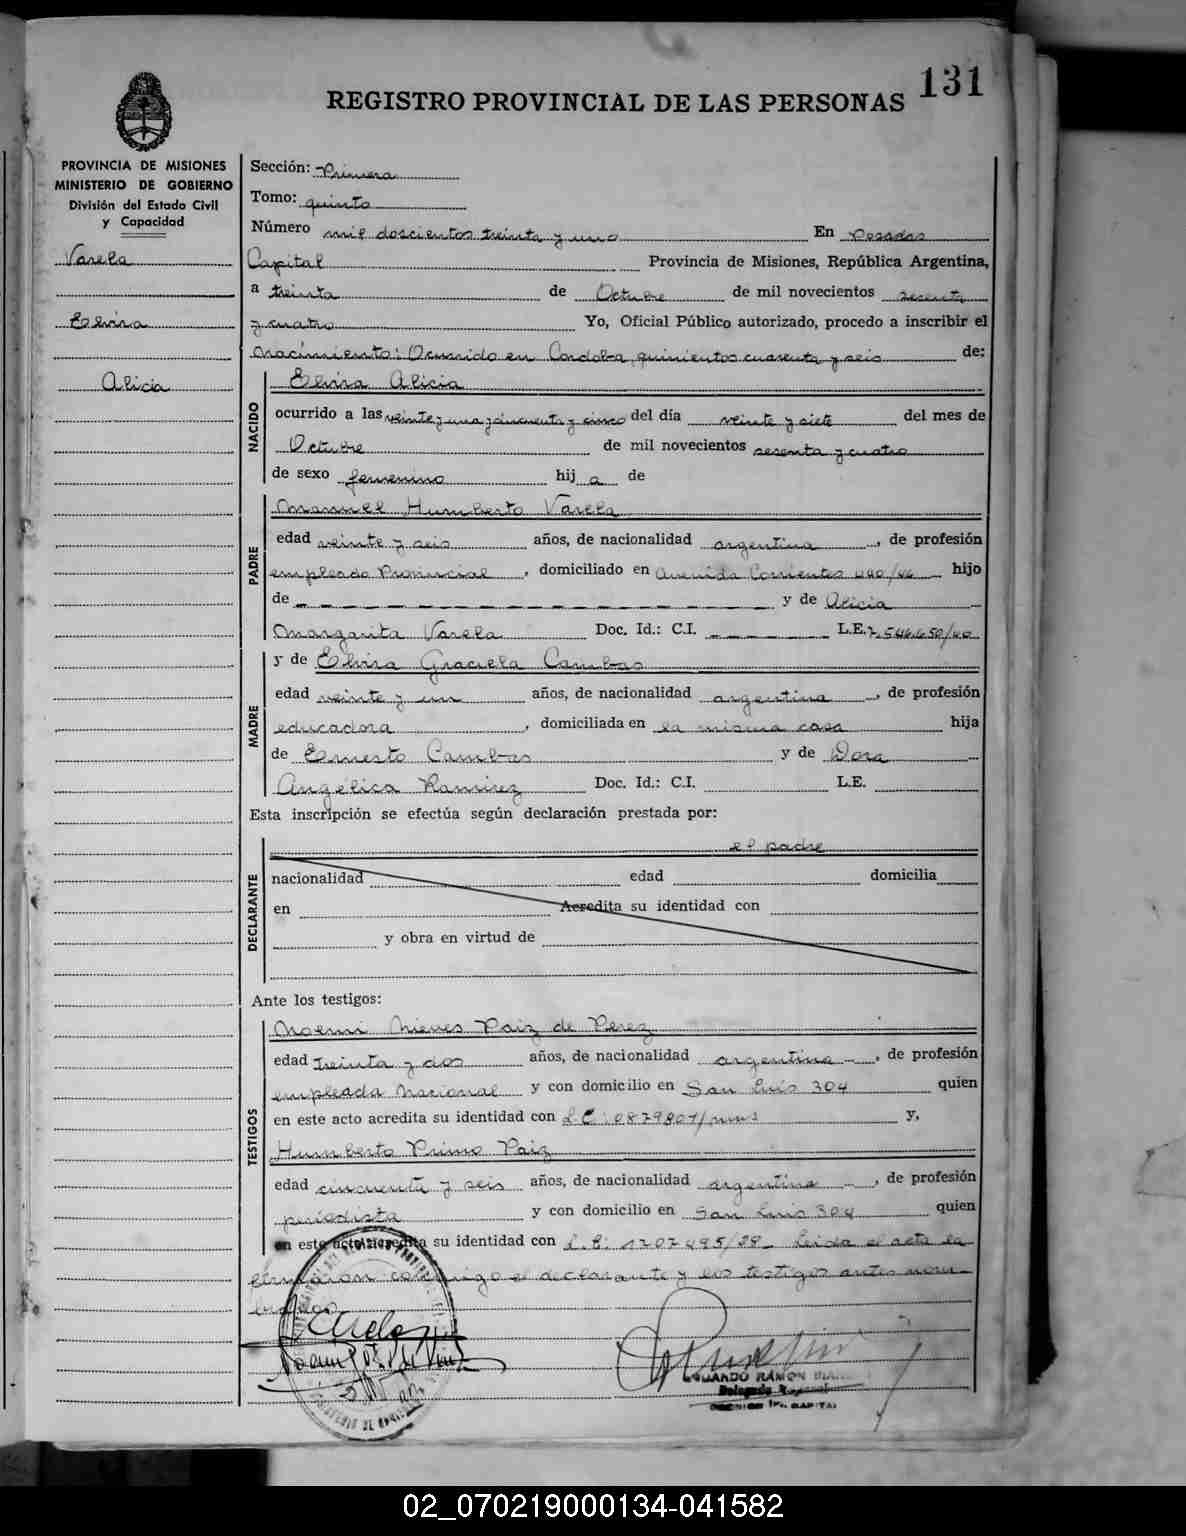 131
REGISTRO PROVINCIAL DE LAS PERSONAS
PROVINCIA DE MISIONES
MINISTERIO DE GOBIERNO
División del Estado Civil
y Capacidad
Varela
Elvira
Alicia
Sección: Primera
Tomo: quinto
Número mil doscientos treinta y uno En Posadas
Capital Provincia de Misiones, República Argentina,
a treinta de Octubre de mil novecientos sesenta
y cuatro Yo, Oficial Público autorizado, procedo a inscribir el
nacimiento: Ocurrido en Cordoba, quinientos cuarenta y seis de:
NACIDO
Elvira Alicia
ocurrido a las veinte y una y cincuenta y cinco del día veinte y siete del mes de
Octubre de mil novecientos sesenta y cuatro
de sexo femenino hij a de
PADRE
Manuel Humberto Varela
edad veinte y seis años, de nacionalidad argentina, de profesión
empleado Provincial, domiciliado en Avenida Corrientes hijo
de — — — — — — — — — — — — — y de Alicia
Margarita Varela Doc. Id.: C.I. — — — — — L.E. 7.546.650/40
MADRE
y de Elvira Graciela Cambas
edad veinte y un años, de nacionalidad argentina, de profesión
educadora, domiciliada en la misma casa hija
de Ernesto Cambas y de Dora
Angélica Ramirez Doc. Id.: C.I. L.E.
Esta inscripción se efectúa según declaración prestada por:
DECLARANTE
el padre
nacionalidad edad domicilia
en Acredita su identidad con
y obra en virtud de
Ante los testigos:
TESTIGOS
Noemi Nieves Paiz de Perez
edad treinta y dos años, de nacionalidad argentina, de profesión
empleada nacional y con domicilio en San Luis 304 quien
en este acto acredita su identidad con L.C: 0879801/mns y,
Humberto Primo Paiz
edad cincuenta y seis años, de nacionalidad argentina, de profesión
periodista y con domicilio en San Luis 304 quien
en este acto acredita su identidad con L.E: 1207495/28 Leida el acta la
firmaron conmigo el declarante y los testigos antes nom-
brados
EDUARDO RAMON
Delegado
02_070219000134-041582